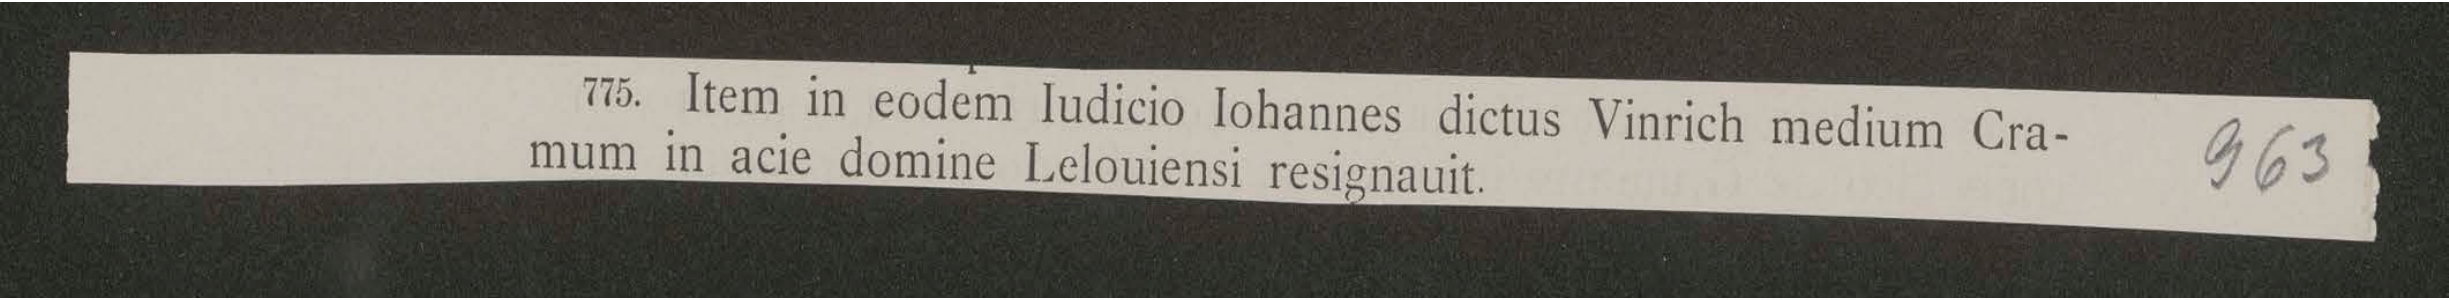 775. Item in eodem Iudicio Iohannes dictus Vinrich medium Cra-
mum in acie domine Lelouiensi resignauit.
963